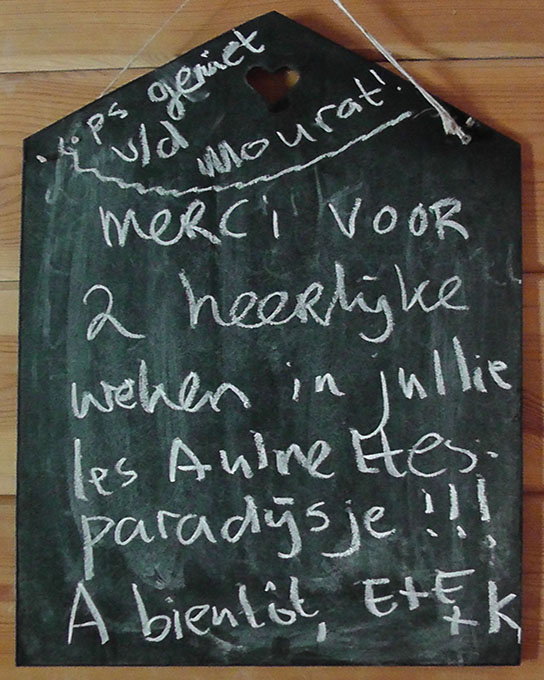 ps geniet
v/d mourat!
MERCi VOOR
2 heerlijke
weken in jullie
les Aulnettes.
paradijsje !!!
A bientôt, E+E
+K